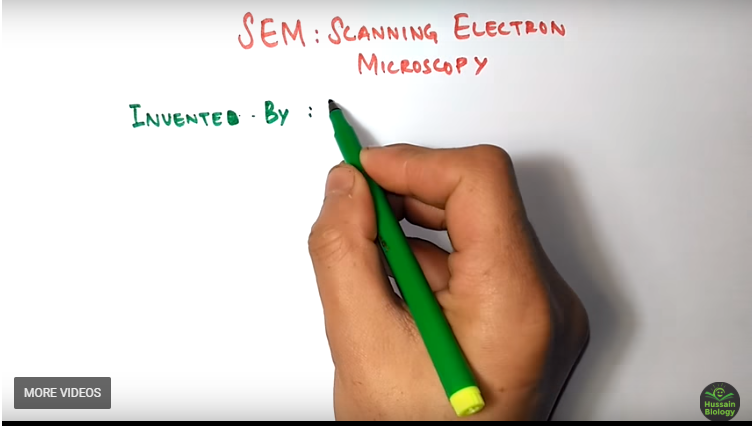 SEM: SCANNING ELECTRON
MICROSCOPY
INVENTED. BY :
MORE VIDEOS
Hussain
Biology